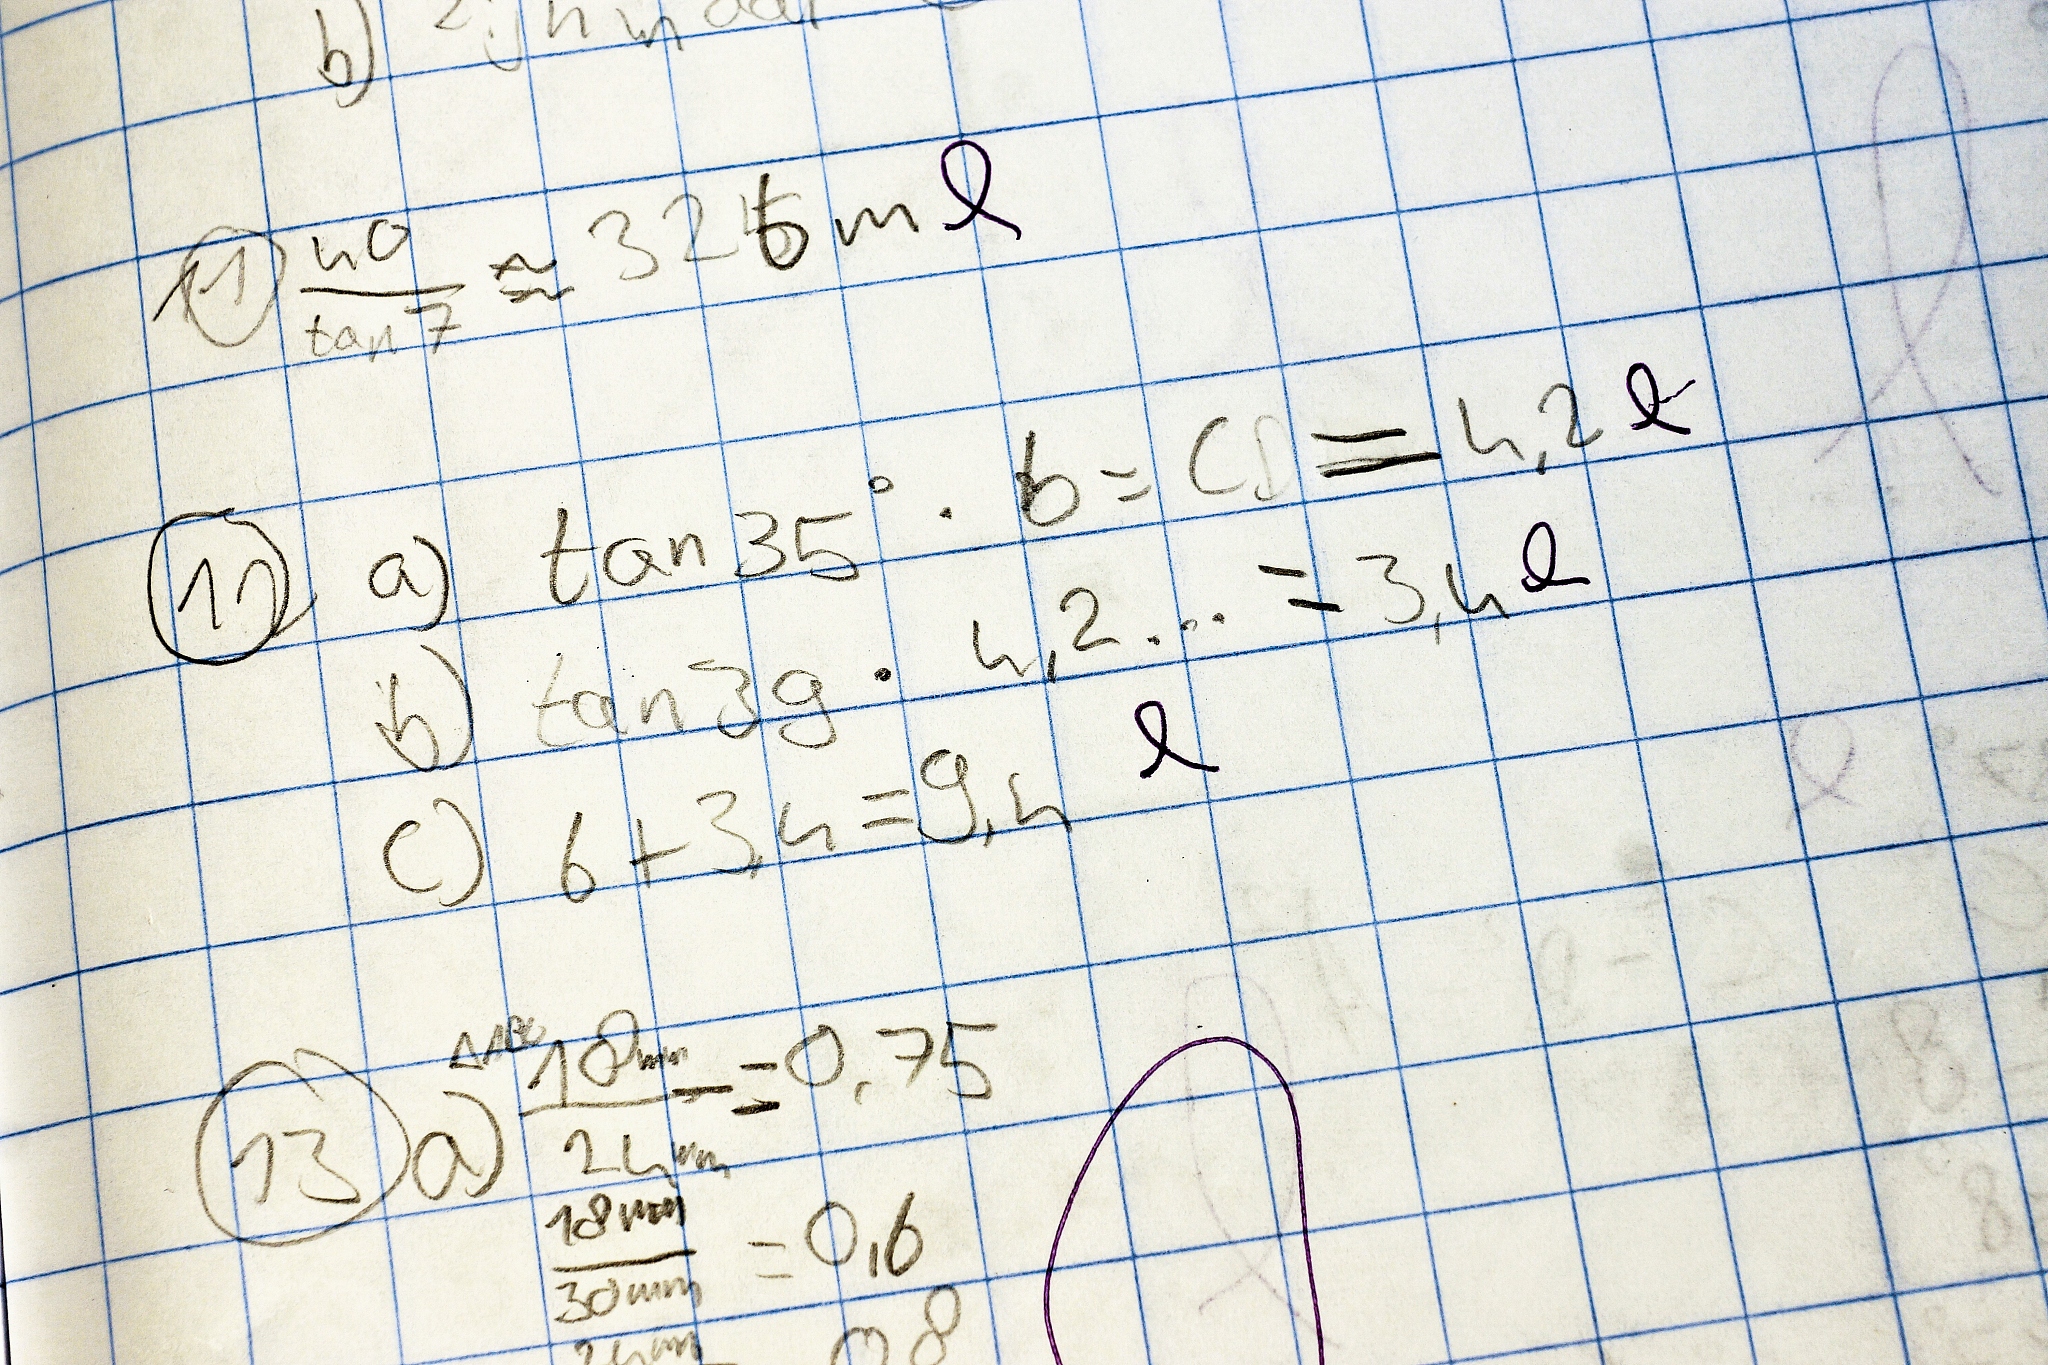 b) zijn
11) 40/tan 7 ≈ 326 m
12 a) tan 35° · 6 = CD = 4,2
b) tan 39 · 4,2... = 3,4
c) 6 + 3,4 = 9,4
13 a) 18mm/24mm = 0,75
18mm/30mm = 0,6
24mm 0,8